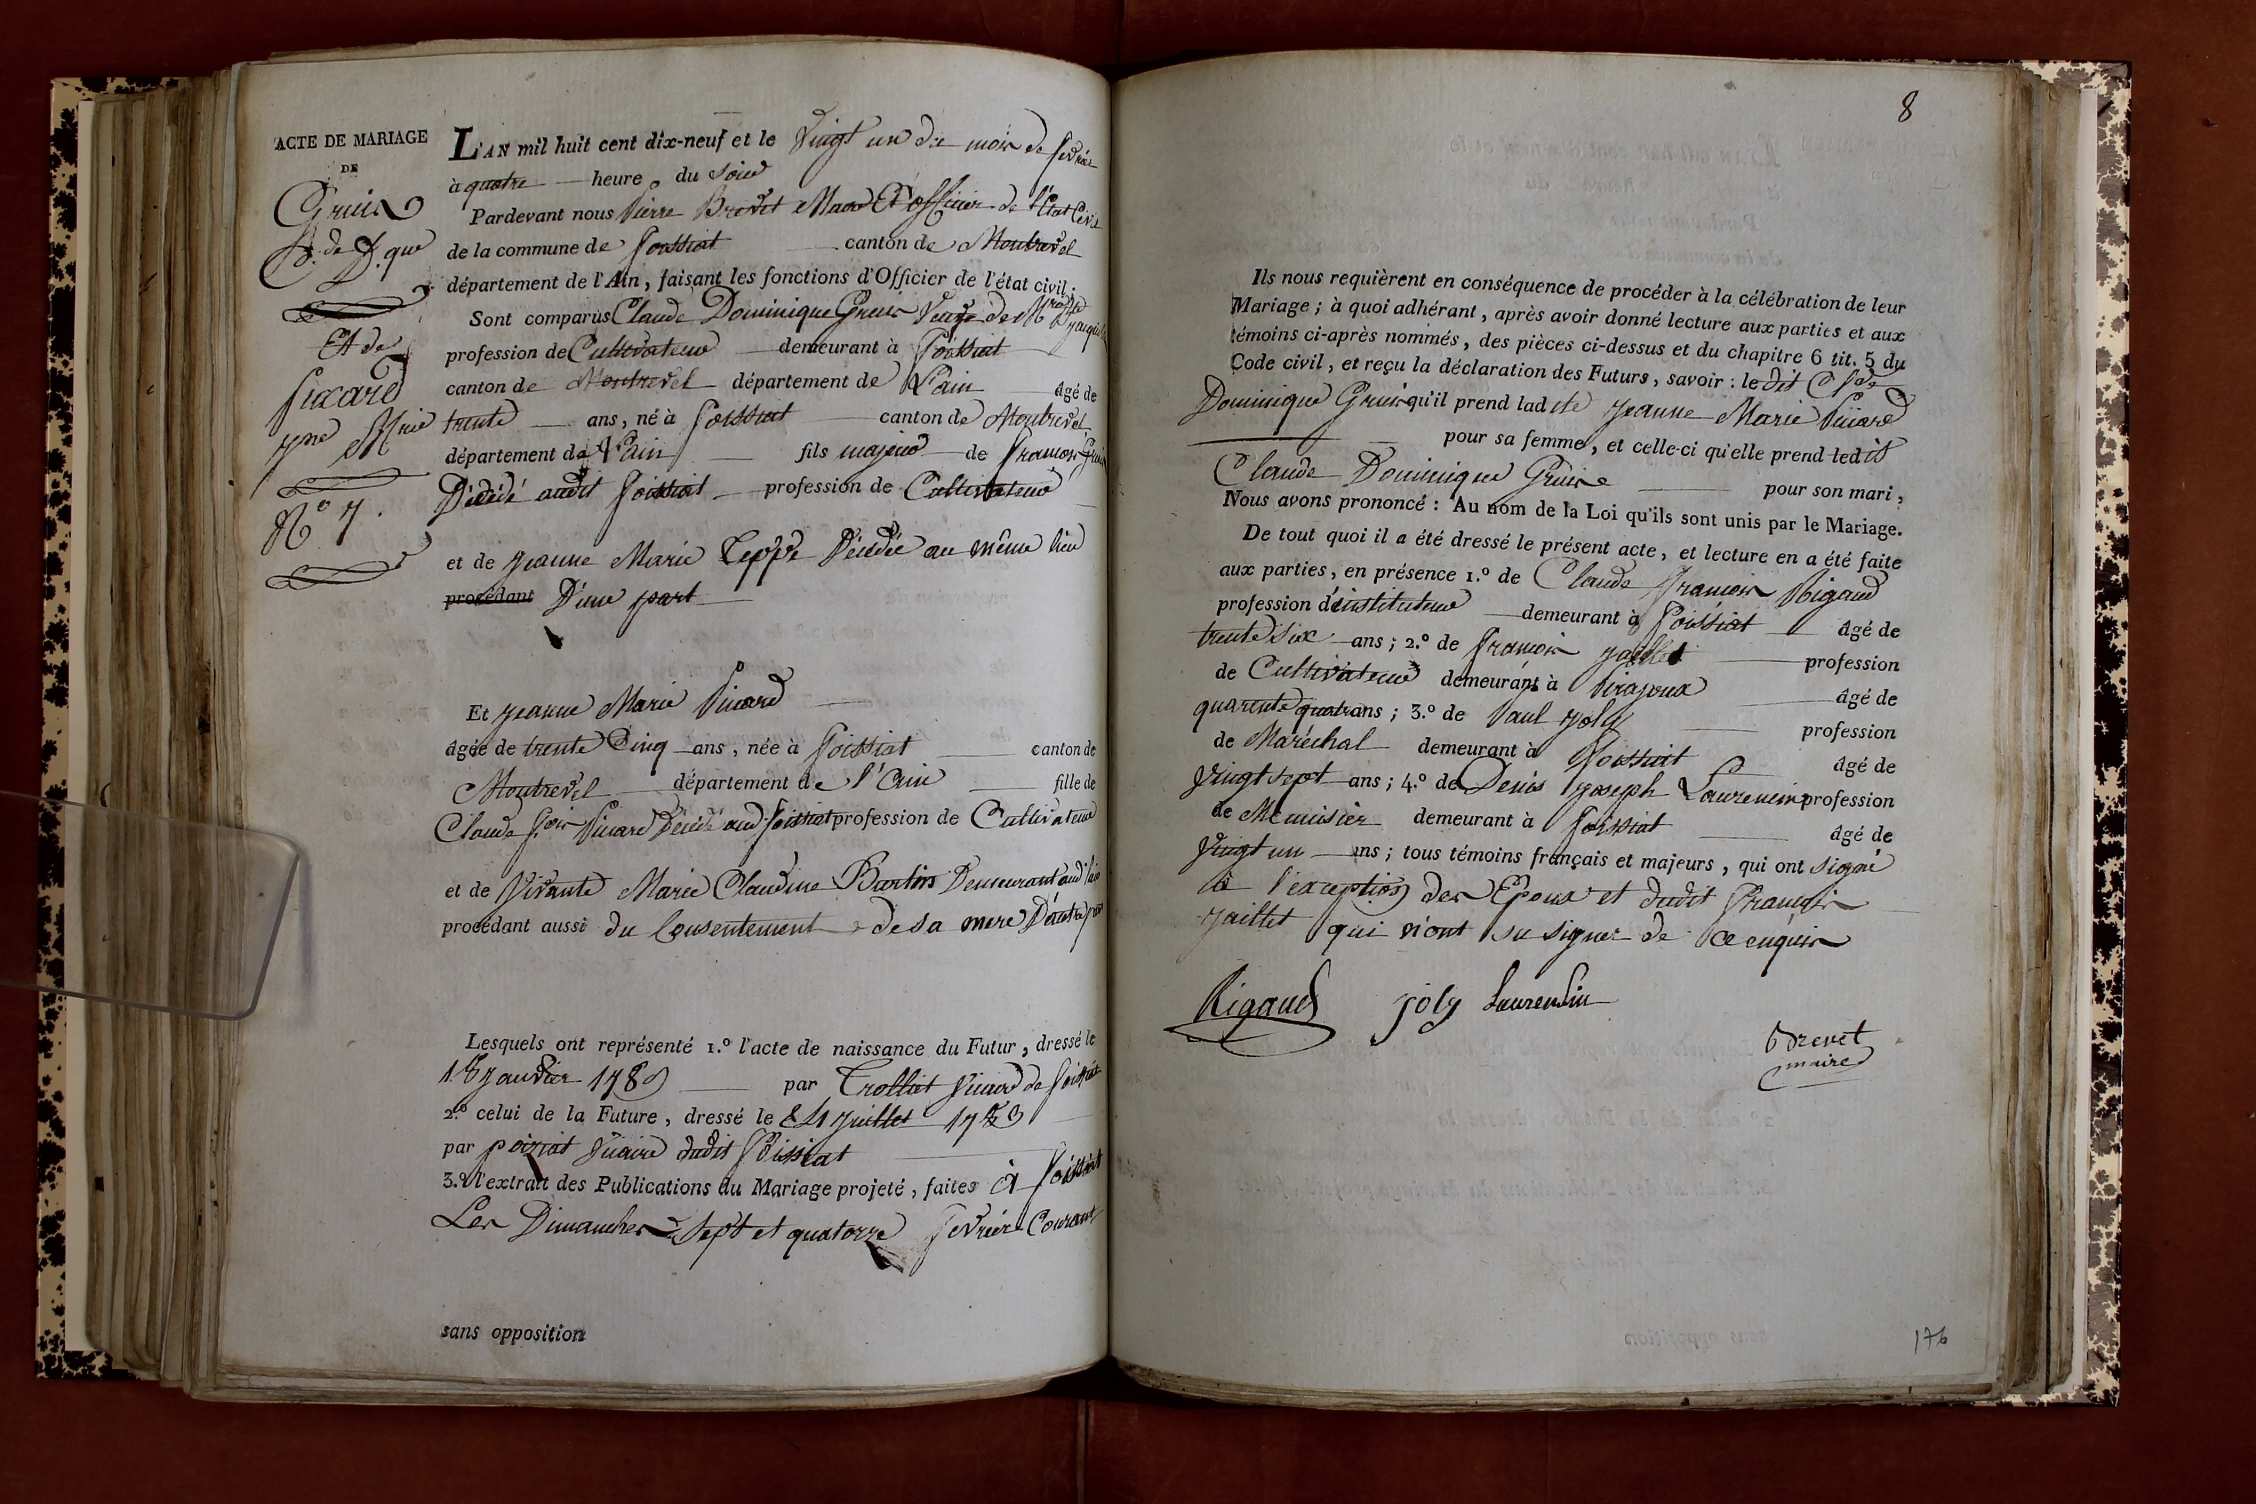 ACTE DE MARIAGE
DE
Gruis
C.de D.que
Et de
Picard
Jne Mrie
N.º 7.
L'AN mil huit cent dix-neuf et le Vingt un du mois de fevrier
à quatre heure du soir
Pardevant nous Pierre Brevet Maire Et officier de l'Etat Civil
de la commune de foissiat canton de Montrevel
département de l'Ain, faisant les fonctions d'Officier de l'état civil;
Sont comparus Claude Dominique Gruis Veuf de
profession de Cultivateur demeurant à foissiat
canton de Montrevel département de L'ain âgé de
trente ans, né à foissiat canton de Montrevel
département de L'ain fils majeur de francois Gruis
Décédé audit foissiat profession de Cultivateur
et de Jeanne Marie Teppe Décédée au même lieu
procédant D'une part
Et Jeanne Marie Picard
âgée de trente Cinq ans, née à foissiat canton de
Montrevel département de l'Ain fille de
Claude f.cois Picard Décédé aud. foissiat profession de Cultivateur
et de Vivante Marie Claudine Burtin Demeurant aud. lieu
procédant aussi du Consentement de sa mere D'autre part
Lesquels ont représenté 1.º l'acte de naissance du Futur, dressé le
janvier 1789 par Trolliet Vicaire de foissiat
2.º celui de la Future, dressé le juillet
par poiziat Vicaire dudit foissiat
3.º l'extrait des Publications du Mariage projeté, faites à foissiat
Les Dimanches sept et quatorze fevrier Courant
sans opposition
8
Ils nous requièrent en conséquence de procéder à la célébration de leur
Mariage; à quoi adhérant, après avoir donné lecture aux parties et aux
témoins ci-après nommés, des pièces ci-dessus et du chapitre 6 tit. 5 du
Code civil, et reçu la déclaration des Futurs, savoir: le dit C.de
Dominique Gruis qu'il prend ladite Jeanne Marie Picard
pour sa femme, et celle-ci qu'elle prend ledit
Claude Dominique Gruis pour son mari,
Nous avons prononcé: Au nom de la Loi qu'ils sont unis par le Mariage.
De tout quoi il a été dressé le présent acte, et lecture en a été faite
aux parties, en présence 1.º de Claude francois Rigaud
profession d'instituteur demeurant à foissiat âgé de
trente six ans; 2.º de francois Jaillet profession
de Cultivateur demeurant à Pirajoux âgé de
quarente quatre ans; 3.º de Paul Joly profession
de Maréchal demeurant à foissiat âgé de
Vingt sept ans; 4.º de Denis Joseph Laurencin profession
de Menuisier demeurant à foissiat âgé de
Vingt un ans; tous témoins français et majeurs, qui ont signé
à l'exception des Epoux et dudit francois
Jaillet qui n'ont su signer de ce enquis
Rigaud joly Laurencin
Brevet
maire
176